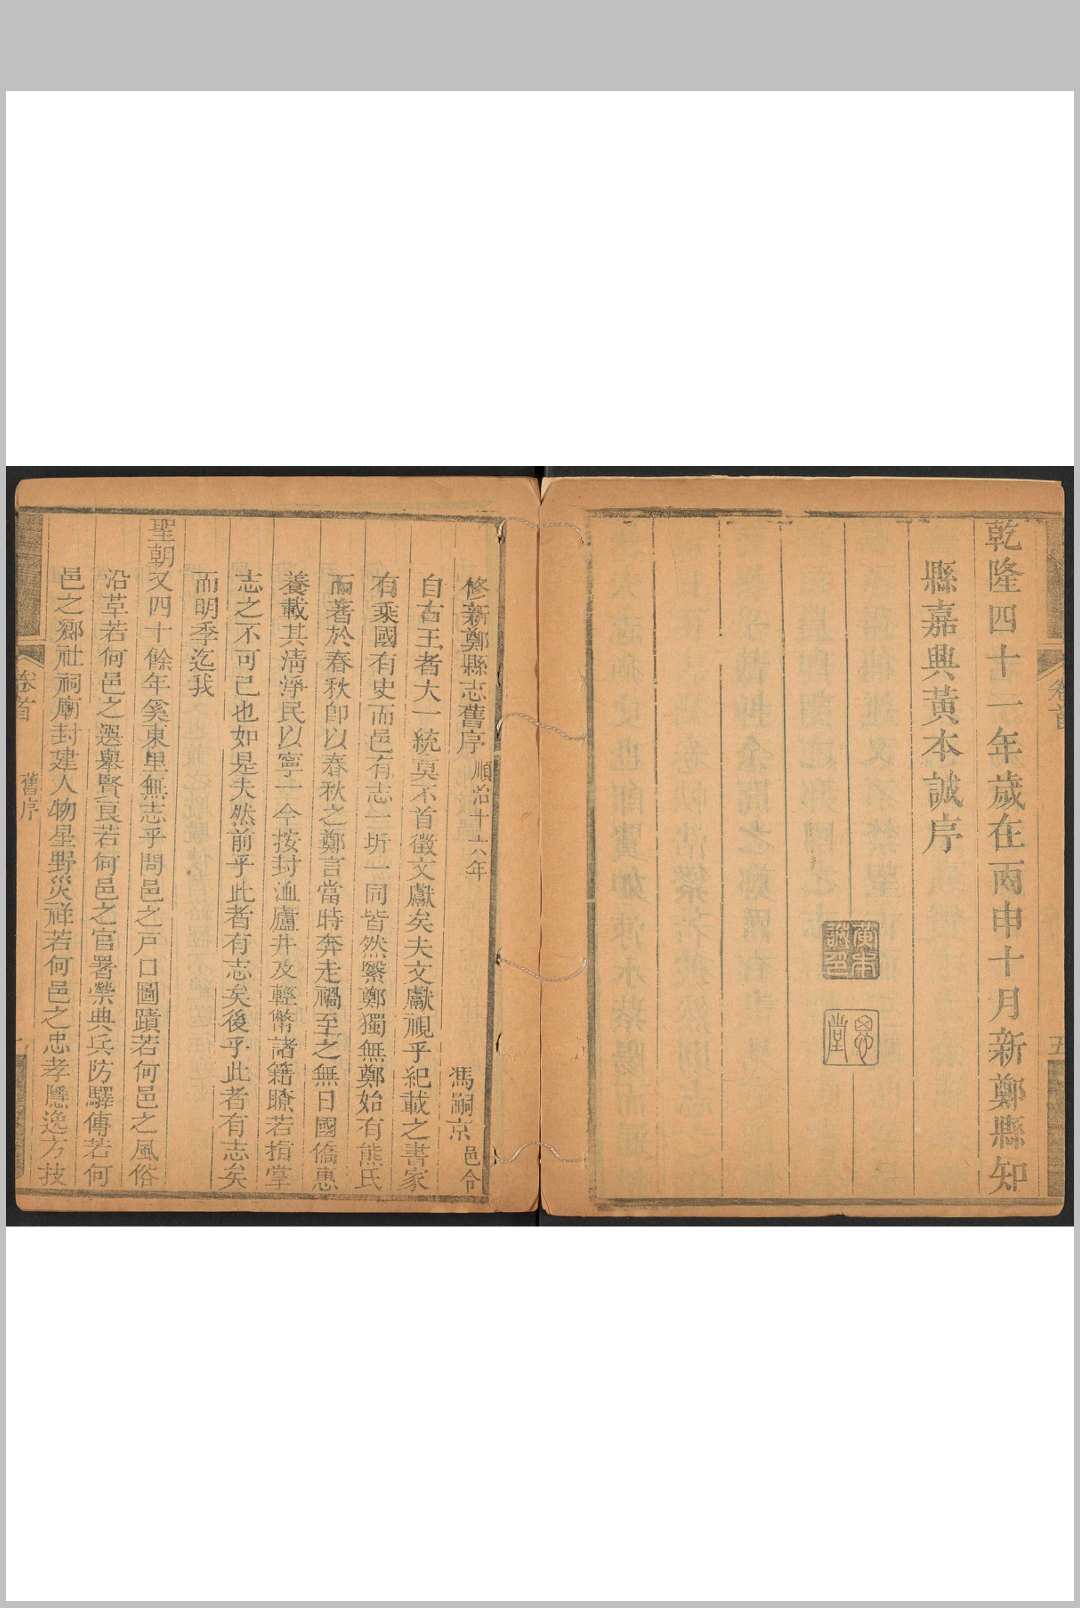 乾隆四十一年歲在丙申十月新鄭縣知
縣嘉興黃本誠序
黃本誠印
卷首
五
修新鄭縣志舊序 順治十六年 馮嗣京 邑令
自古王者大一統莫不首徵文獻矣夫文獻視乎紀載之書家
有乘國有史而邑有志一圻一同皆然繄鄭獨無鄭始有熊氏
而著於春秋卽以春秋之鄭言當時奔走禍至之無日國僑惠
養載其清淨民以寧一今按封洫廬井及輕幣諸籍瞭若指掌
志之不可已也如是夫然前乎此者有志矣後乎此者有志矣
而明季迄我
聖朝又四十餘年奚東里無志乎問邑之戸口圖蹟若何邑之風俗
沿革若何邑之選舉賢良若何邑之官署榮典兵防驛傳若何
邑之鄉社祠廟封建人物星野災祥若何邑之忠孝隱逸方技
卷首 舊序